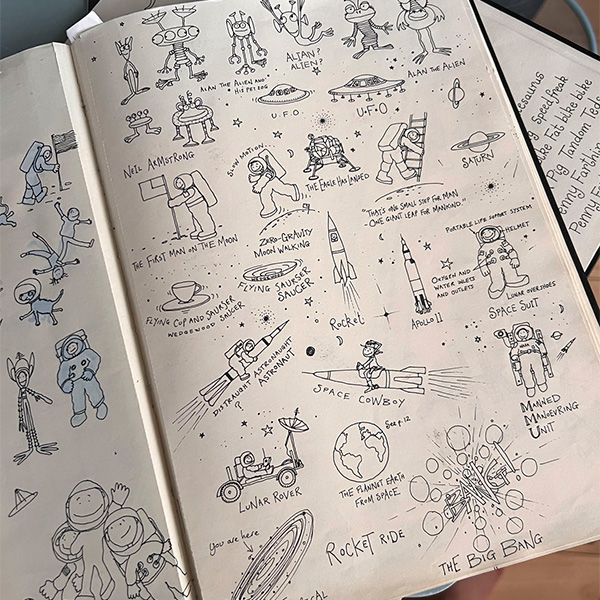 ALIAN?
ALIEN?
ALAN THE ALIEN AND
HIS PET EGG
U.F.O
U.F.O
ALAN THE ALIEN
NEIL ARMSTRONG
SLOW MOTION
THE EAGLE HAS LANDED
SATURN
"THAT'S ONE SMALL STEP FOR MAN
ONE GIANT LEAP FOR MANKIND."
THE FIRST MAN ON THE MOON
ZERO-GRAVITY
MOON WALKING
PORTABLE LIFE SUPPORT SYSTEM
HELMET
OXYGEN AND
WATER INLETS
AND OUTLETS
LUNAR OVERSHOES
SPACE SUIT
FLYING SAUCER
SAUCER
FLYING CUP AND SAUCER
WEDGEWOOD SAUCER
ROCKET
APOLLO 11
DISTRAUGHT ASTRONAUGHT
ASTRONAUT
?
SPACE COWBOY
MANNED
MANOEVRING
UNIT
LUNAR ROVER
See p.12
THE PLANNET EARTH
FROM SPACE
BANG!
THE BIG BANG
You are here
ROCKET RIDE
speed freak
bike
Tandem
Penny Farthing
Penny